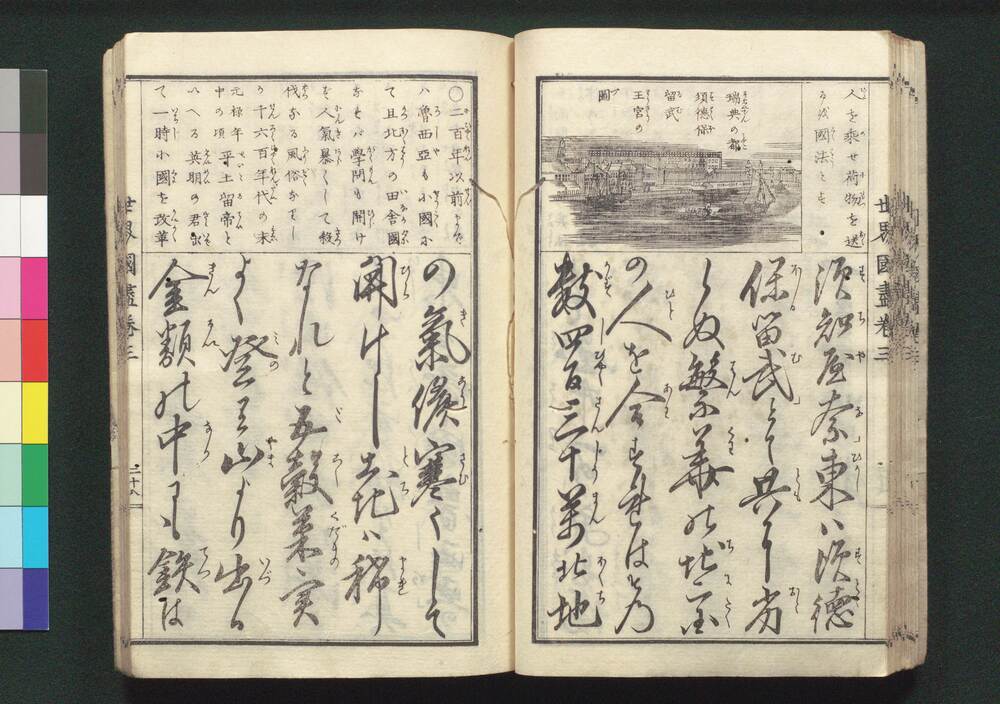 人を乘せ荷物を送
るを國法とす
瑞典の都
須德保
留武
王宮の
圖
須知屋奈東ハ須德
保留武とて其に劣
らぬ繁華の地全國
の人を合せはその
數四百三十萬北地
世界國盡 卷三
〇二百年以前まで
ハ魯西亞も小國に
て且北方の田舎國
なれバ學問も開け
ず人氣暴くして殺
伐なる風俗なりし
が千六百年代の末
元禄年
中の頃平土留帝と
いへる英明の君出
て一時に國を改革
の氣候寒くして
開けし土地ハ稀
なれと五穀菓実
よく登り山より出る
金類の中にも鉄は
世界國盡 卷三
二十八